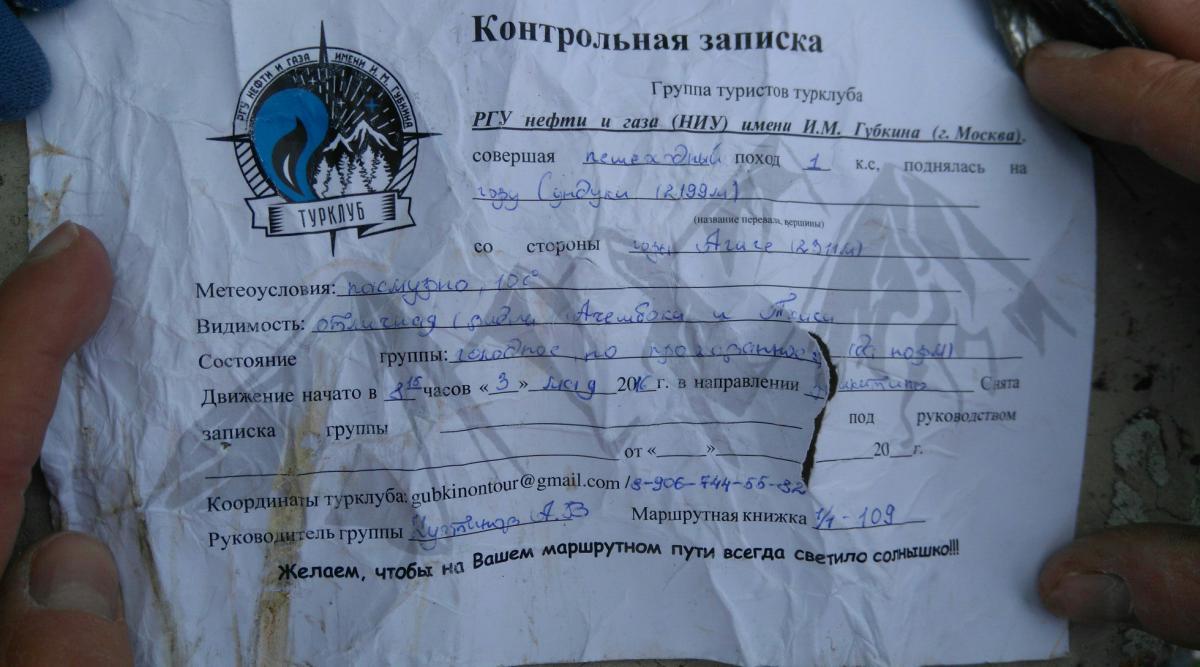 РГУ НЕФТИ И ГАЗА ИМЕНИ И.М. ГУБКИНА
ТУРКЛУБ
Контрольная записка
Группа туристов турклуба
РГУ нефти и газа (НИУ) имени И.М. Губкина (г. Москва),
совершая пешеходный поход 1 к.с, поднялась на
гору Сундуки (2199м)
(название перевала, вершины)
со стороны горы Агиге (2311м)
Метеоусловия: пасмурно, 10С°
Видимость: отличная Ачешбоки и
Состояние группы: голодное, по
Движение начато в 8 15 часов «3» мая 2016г. в направлении Снята
записка группы под руководством
от « » 20 г.
Координаты турклуба: gubkinontour@gmail.com /8-906-744-55-32
Руководитель группы А.В Маршрутная книжка 1/1-109
Желаем, чтобы на Вашем маршрутном пути всегда светило солнышко!!!